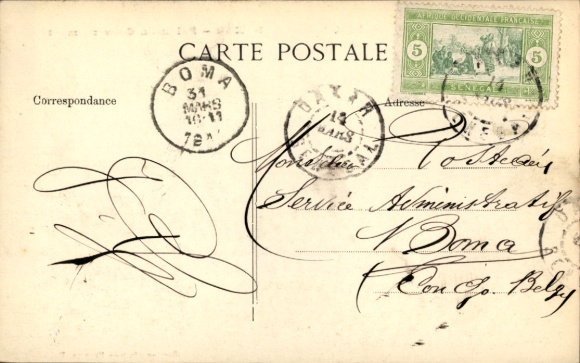 CARTE POSTALE
AFRIQUE OCCIDENTALE FRANÇAISE
5 5
SÉNÉGAL
Correspondance
Adresse
BOMA
31
MARS
10-11
DAKAR
14
MARS
SENEGAL
14
Monsieur
Service Administratif
Boma
Congo Belge